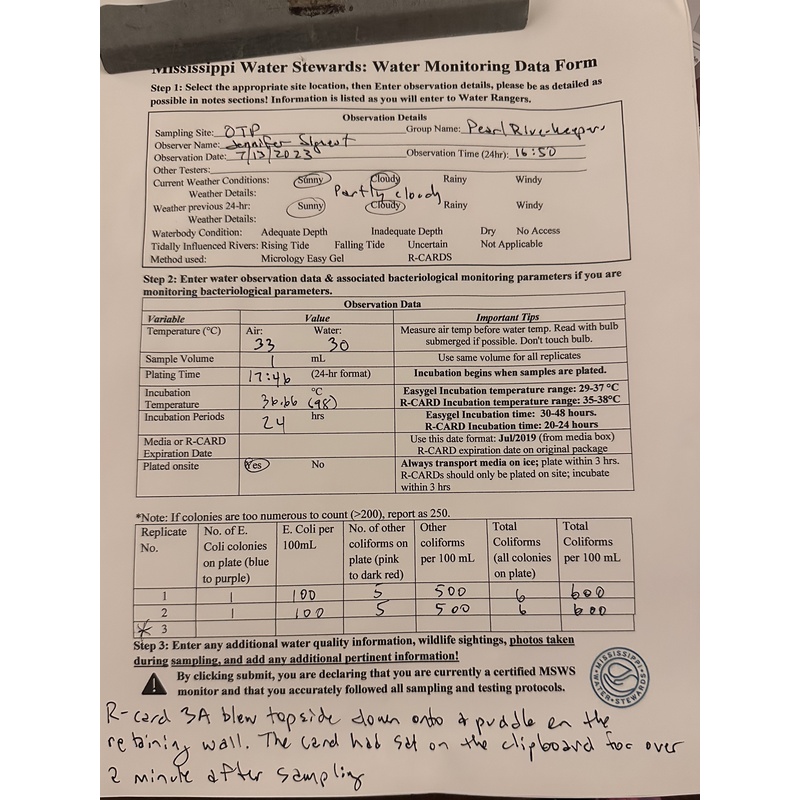 Mississippi Water Stewards: Water Monitoring Data Form
Step 1: Select the appropriate site location, then Enter observation details, please be as detailed as
possible in notes sections! Information is listed as you will enter to Water Rangers.
Observation Details
Sampling Site: OTP Group Name: Pearl Riverkeepers
Observer Name: Jennifer
Observation Date: 7/13/2023 Observation Time (24hr): 16:50
Other Testers:
Current Weather Conditions: Sunny Cloudy Rainy Windy
Weather Details: Partly cloudy
Weather previous 24-hr: Sunny Cloudy Rainy Windy
Weather Details:
Waterbody Condition: Adequate Depth Inadequate Depth Dry No Access
Tidally Influenced Rivers: Rising Tide Falling Tide Uncertain Not Applicable
Method used: Micrology Easy Gel R-CARDS
Step 2: Enter water observation data & associated bacteriological monitoring parameters if you are
monitoring bacteriological parameters.
Observation Data
Variable Value Important Tips
Temperature (°C) Air: Water: Measure air temp before water temp. Read with bulb
33 30 submerged if possible. Don't touch bulb.
Sample Volume 1 mL Use same volume for all replicates
Plating Time 17:46 (24-hr format) Incubation begins when samples are plated.
Incubation °C Easygel Incubation temperature range: 29-37 °C
Temperature 36.66 (98) R-CARD Incubation temperature range: 35-38°C
Incubation Periods 24 hrs Easygel Incubation time: 30-48 hours.
R-CARD Incubation time: 20-24 hours
Media or R-CARD Use this date format: Jul/2019 (from media box)
Expiration Date R-CARD expiration date on original package
Plated onsite Yes No Always transport media on ice; plate within 3 hrs.
R-CARDs should only be plated on site; incubate
within 3 hrs
*Note: If colonies are too numerous to count (>200), report as 250.
Replicate No. of E. E. Coli per No. of other Other Total Total
No. Coli colonies 100mL coliforms on coliforms Coliforms Coliforms
on plate (blue plate (pink per 100 mL (all colonies per 100 mL
to purple) to dark red) on plate)
1 1 100 5 500 6 600
2 1 100 5 500 6 600
* 3
Step 3: Enter any additional water quality information, wildlife sightings, photos taken
during sampling, and add any additional pertinent information!
By clicking submit, you are declaring that you are currently a certified MSWS
monitor and that you accurately followed all sampling and testing protocols.
MISSISSIPPI WATER STEWARDS
R-card 3A blew topside down onto a puddle on the
retaining wall. The card had sat on the clipboard for over
2 minute after sampling